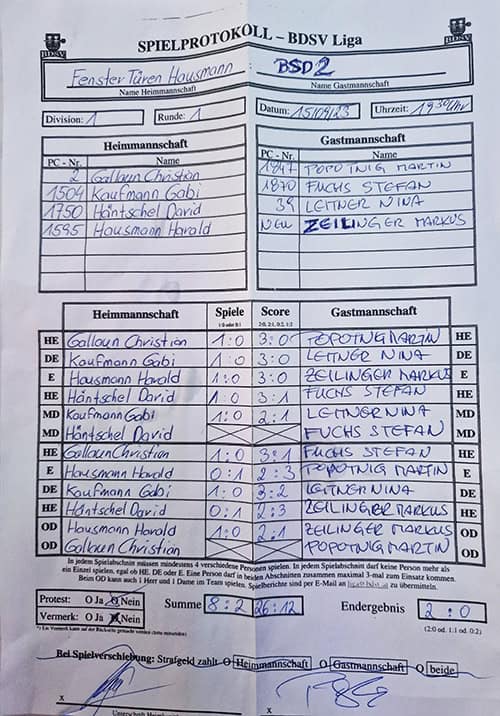 BDSV BDSV
SPIELPROTOKOLL – BDSV Liga
Fenster Türen Hausmann BSD 2
Name Heimmannschaft Name Gastmannschaft
Division: 1 Runde: 1 Datum: 15/09/23 Uhrzeit: 19 30 Uhr
Heimmannschaft Gastmannschaft
PC - Nr. Name PC - Nr. Name
2 Gallaun Christian 1847 POPOTNIG MARTIN
1504 Kaufmann Gabi 1870 FUCHS STEFAN
1750 Häntschel David 39 LEITNER NINA
1595 Hausmann Harald NEU ZEILINGER MARKUS
Heimmannschaft Spiele Score Gastmannschaft
1:0 oder 0:1 3:0, 2:1, 0:2, 1:2
HE Gallaun Christian 1:0 3:0 POPOTNIG MARTIN HE
DE Kaufmann Gabi 1:0 3:0 LEITNER NINA DE
E Hausmann Harald 1:0 3:0 ZEILINGER MARKUS E
HE Häntschel David 1:0 3:1 FUCHS STEFAN HE
MD Kaufmann Gabi 1:0 2:1 LEITNER NINA MD
MD Häntschel David FUCHS STEFAN MD
HE Gallaun Christian 1:0 3:1 FUCHS STEFAN HE
E Hausmann Harald 0:1 2:3 POPOTNIG MARTIN E
DE Kaufmann Gabi 1:0 3:2 LEITNER NINA DE
HE Häntschel David 0:1 2:3 ZEILINGER MARKUS HE
OD Hausmann Harald 1:0 2:1 ZEILINGER MARKUS OD
OD Gallaun Christian POPOTNIG MARTIN OD
In jedem Spielabschnitt müssen mindestens 4 verschiedene Personen spielen. In jedem Spielabschnitt darf keine Person mehr als
ein Einzel spielen, egal ob HE, DE oder E. Eine Person darf in beiden Abschnitten zusammen maximal 3-mal zum Einsatz kommen.
Beim OD kann auch 1 Herr und 1 Dame im Team spielen. Spielberichte sind per E-Mail an zu übermitteln.
Protest: O Ja O Nein Summe 8:2 26:12 Endergebnis 2:0
Vermerk: O Ja O Nein (2:0 od. 1:1 od. 0:2)
Bei Spielverschiebung: Strafgeld zahlt O Heimmannschaft O Gastmannschaft O beide
X X